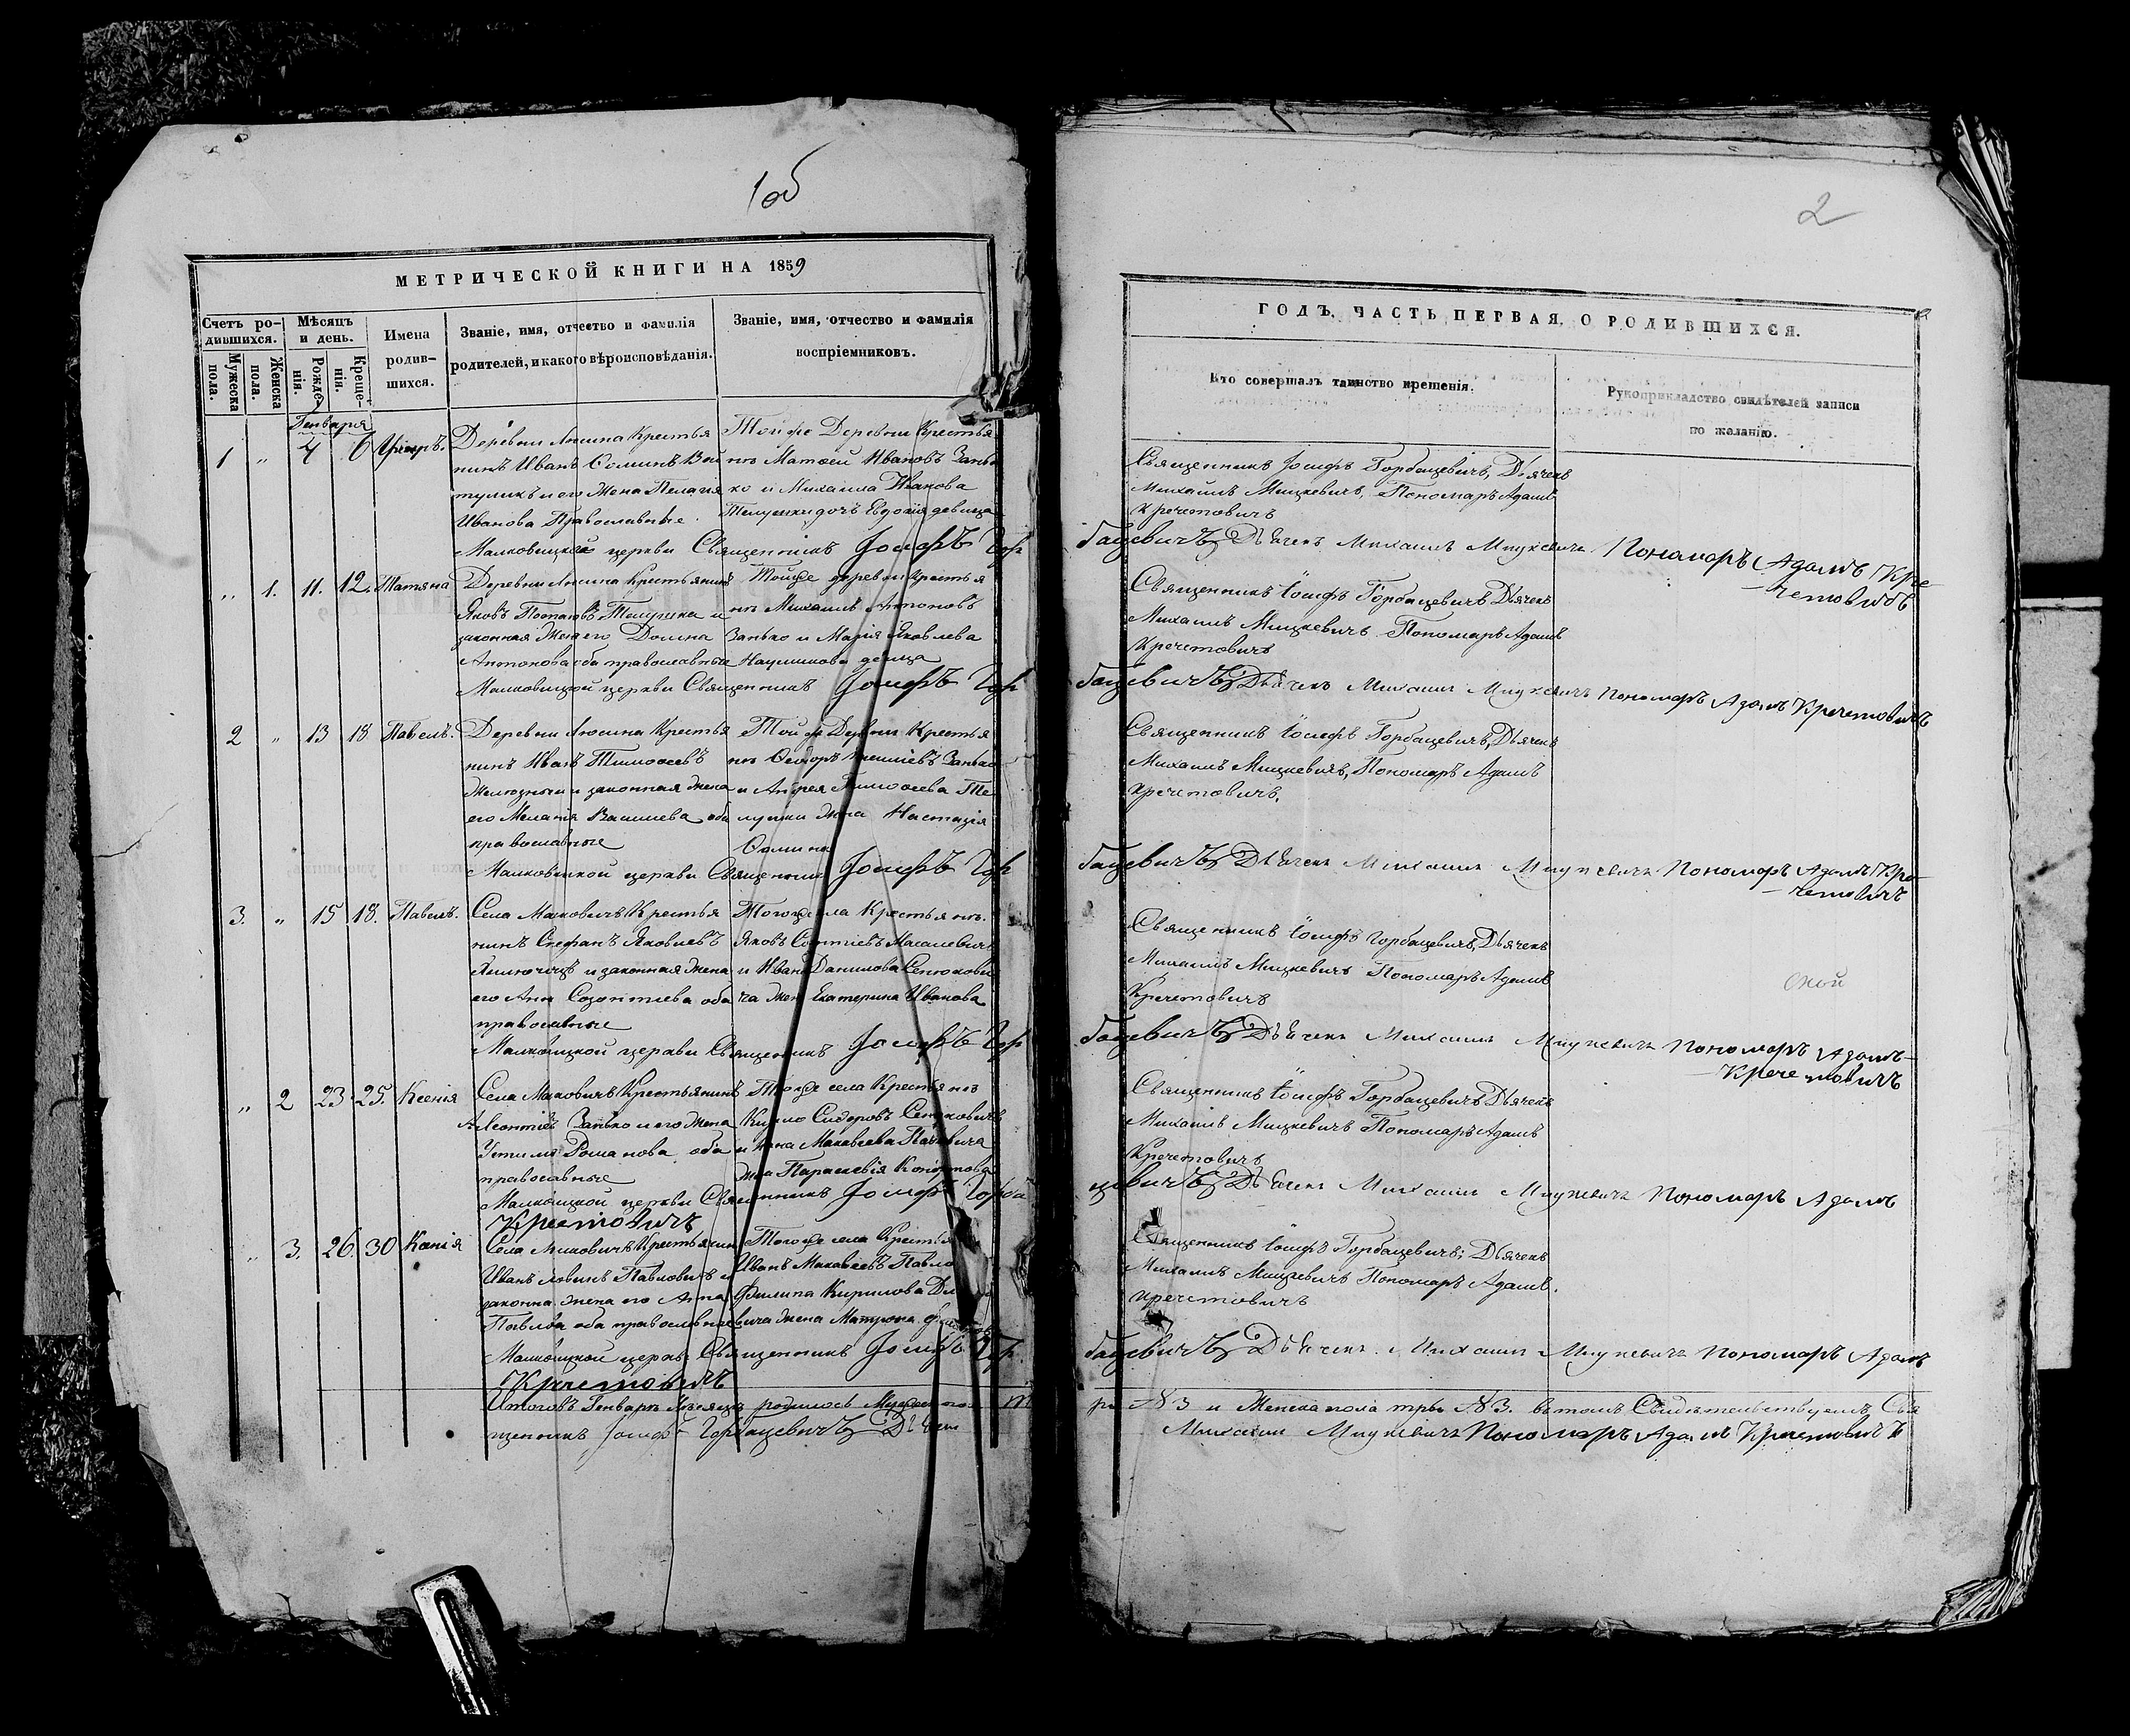 1об
МЕТРИЧЕСКОЙ КНИГИ НА 1859
Счетъ ро-
дившихся.
Мѣсяцъ
и день.
Имена
родив-
шихся.
Званіе, имя, отчество и фамилія
родителей, и какого вѣроисповѣданія.
Званіе, имя, отчество и фамилія
воспріемниковъ.
Мужеска
пола.
Женска
пола.
Рожде-
нія.
Креще-
нія.
Генваря
1 " 4 6
Деревни Люсина Крестья
нинъ Иванъ Сominъ
и его Жена Пелагія
Иванова Православные.
Тойже Деревни Крестья
нъ Матѳей Ивановъ Занько
и Михаила Иванова
дочь Евдокія девица
Малковицкой церкви Священникъ Іосифъ Гор
" 1. 11. 12. Татяна
Деревни Люсина Крестьянинъ
Яковъ Потаповъ и
законная Жена его Домна
Антонова оба православные
Тойже деревни Крестья
нъ Михаилъ Антоновъ
Занько и Марія Яковлева
девица
Малковицкой церкви Священникъ Іосифъ Гор
2 " 13 18 Павелъ.
Деревни Люсина Крестья
нинъ Иванъ Тимоѳеевъ
и законная Жена
его Меланія Василіева оба
православные
Той же Деревни Крестья
нъ Ѳедоръ Занько
и Андрея Тимоѳеева Те
лушки Жена Настазія
Сомина
Малковицкой церкви Священникъ Іосифъ Гор
3. " 15 18. Павелъ.
Села Малковичъ Крестья
нинъ Стефанъ Яковлевъ
и законная Жена
его Анна Созонтіева оба
православные
Тогоже села Крестьянъ.
Яковъ
и Ивана Данилова Сенюкови
ча Жена Екатерина Иванова
Малковицкой церкви Священникъ Іосифъ Гор
" 2 23 25. Ксенія
Села Малковичъ Крестьянинъ
Леонтіевъ Занько и его Жена
Романова оба
православные
Тогоже села Крестьянъ
Сидоровъ Сенюковичъ
и
Жена Параскевія
Малковицкой церкви Священникъ Іосифъ Горба
Кречетовичъ
" 3. 26. 30
Села Малковичъ Крестьянинъ
Иванъ Павловичъ и
законна жена его Анна
Павлова оба православные
Тогоже села Крестья
Иванъ Павло
Филипа Кирилова
вича Жена Матрона
Малковицкой церкви Священникъ Іосифъ Гор
Кречетовичъ
Итогоъ Генварѣ Мѣсяцѣ родилось Мужеска пола
щенникъ Іосифъ Горбацевичъ Дьячекъ
2
ГОДЪ, ЧАСТЬ ПЕРВАЯ, О РОДИВШИХСЯ.
Кто совершалъ таинство крещенія.
Рукоприкладство свидѣтелей записи
по желанію.
Священникъ Іосифъ Горбацевичъ, Дьячекъ
Михаилъ Мицкевичъ, Пономаръ Адамъ
Кречетовичъ
бацевичъ Дьячекъ Михаилъ Мицкевичъ Пономаръ Адамъ Кре
четовичъ
Священникъ Іосифъ Горбацевичъ Дьячекъ
Михаилъ Мицкевичъ Пономаръ Адамъ
Кречетовичъ
бацевичъ Дьячекъ Михаилъ Мицкевичъ Пономаръ Адамъ Кречетовичъ
Священникъ Іосифъ Горбацевичъ, Дьячекъ
Михаилъ Мицкевичъ, Пономаръ Адамъ
Кречетовичъ,
бацевичъ Дьячекъ Михаилъ Мицкевичъ Пономаръ Адамъ Кре
четовичъ
Священникъ Іосифъ Горбацевичъ, Дьячекъ
Михаилъ Мицкевичъ Пономаръ Адамъ
Кречетовичъ
бацевичъ Дьячекъ Михаилъ Мицкевичъ Пономаръ Адамъ
Кречетовичъ
Священникъ Іосифъ Горбацевичъ Дьячекъ
Михаилъ Мицкевичъ Пономаръ Адамъ
Кречетовичъ
цевичъ Дьячекъ Михаилъ Мицкевичъ Пономаръ Адамъ
Священникъ Іосифъ Горбацевичъ; Дьячекъ
Михаилъ Мицкевичъ Пономаръ Адамъ.
Кречетовичъ
бацевичъ Дьячекъ Михаилъ Мицкевичъ Пономаръ Адамъ
ри №3 и Женска пола три №3. въ томъ Свидѣтельствуемъ Свя
Михаилъ Мицкевичъ Пономаръ Адамъ Кречетовичъ